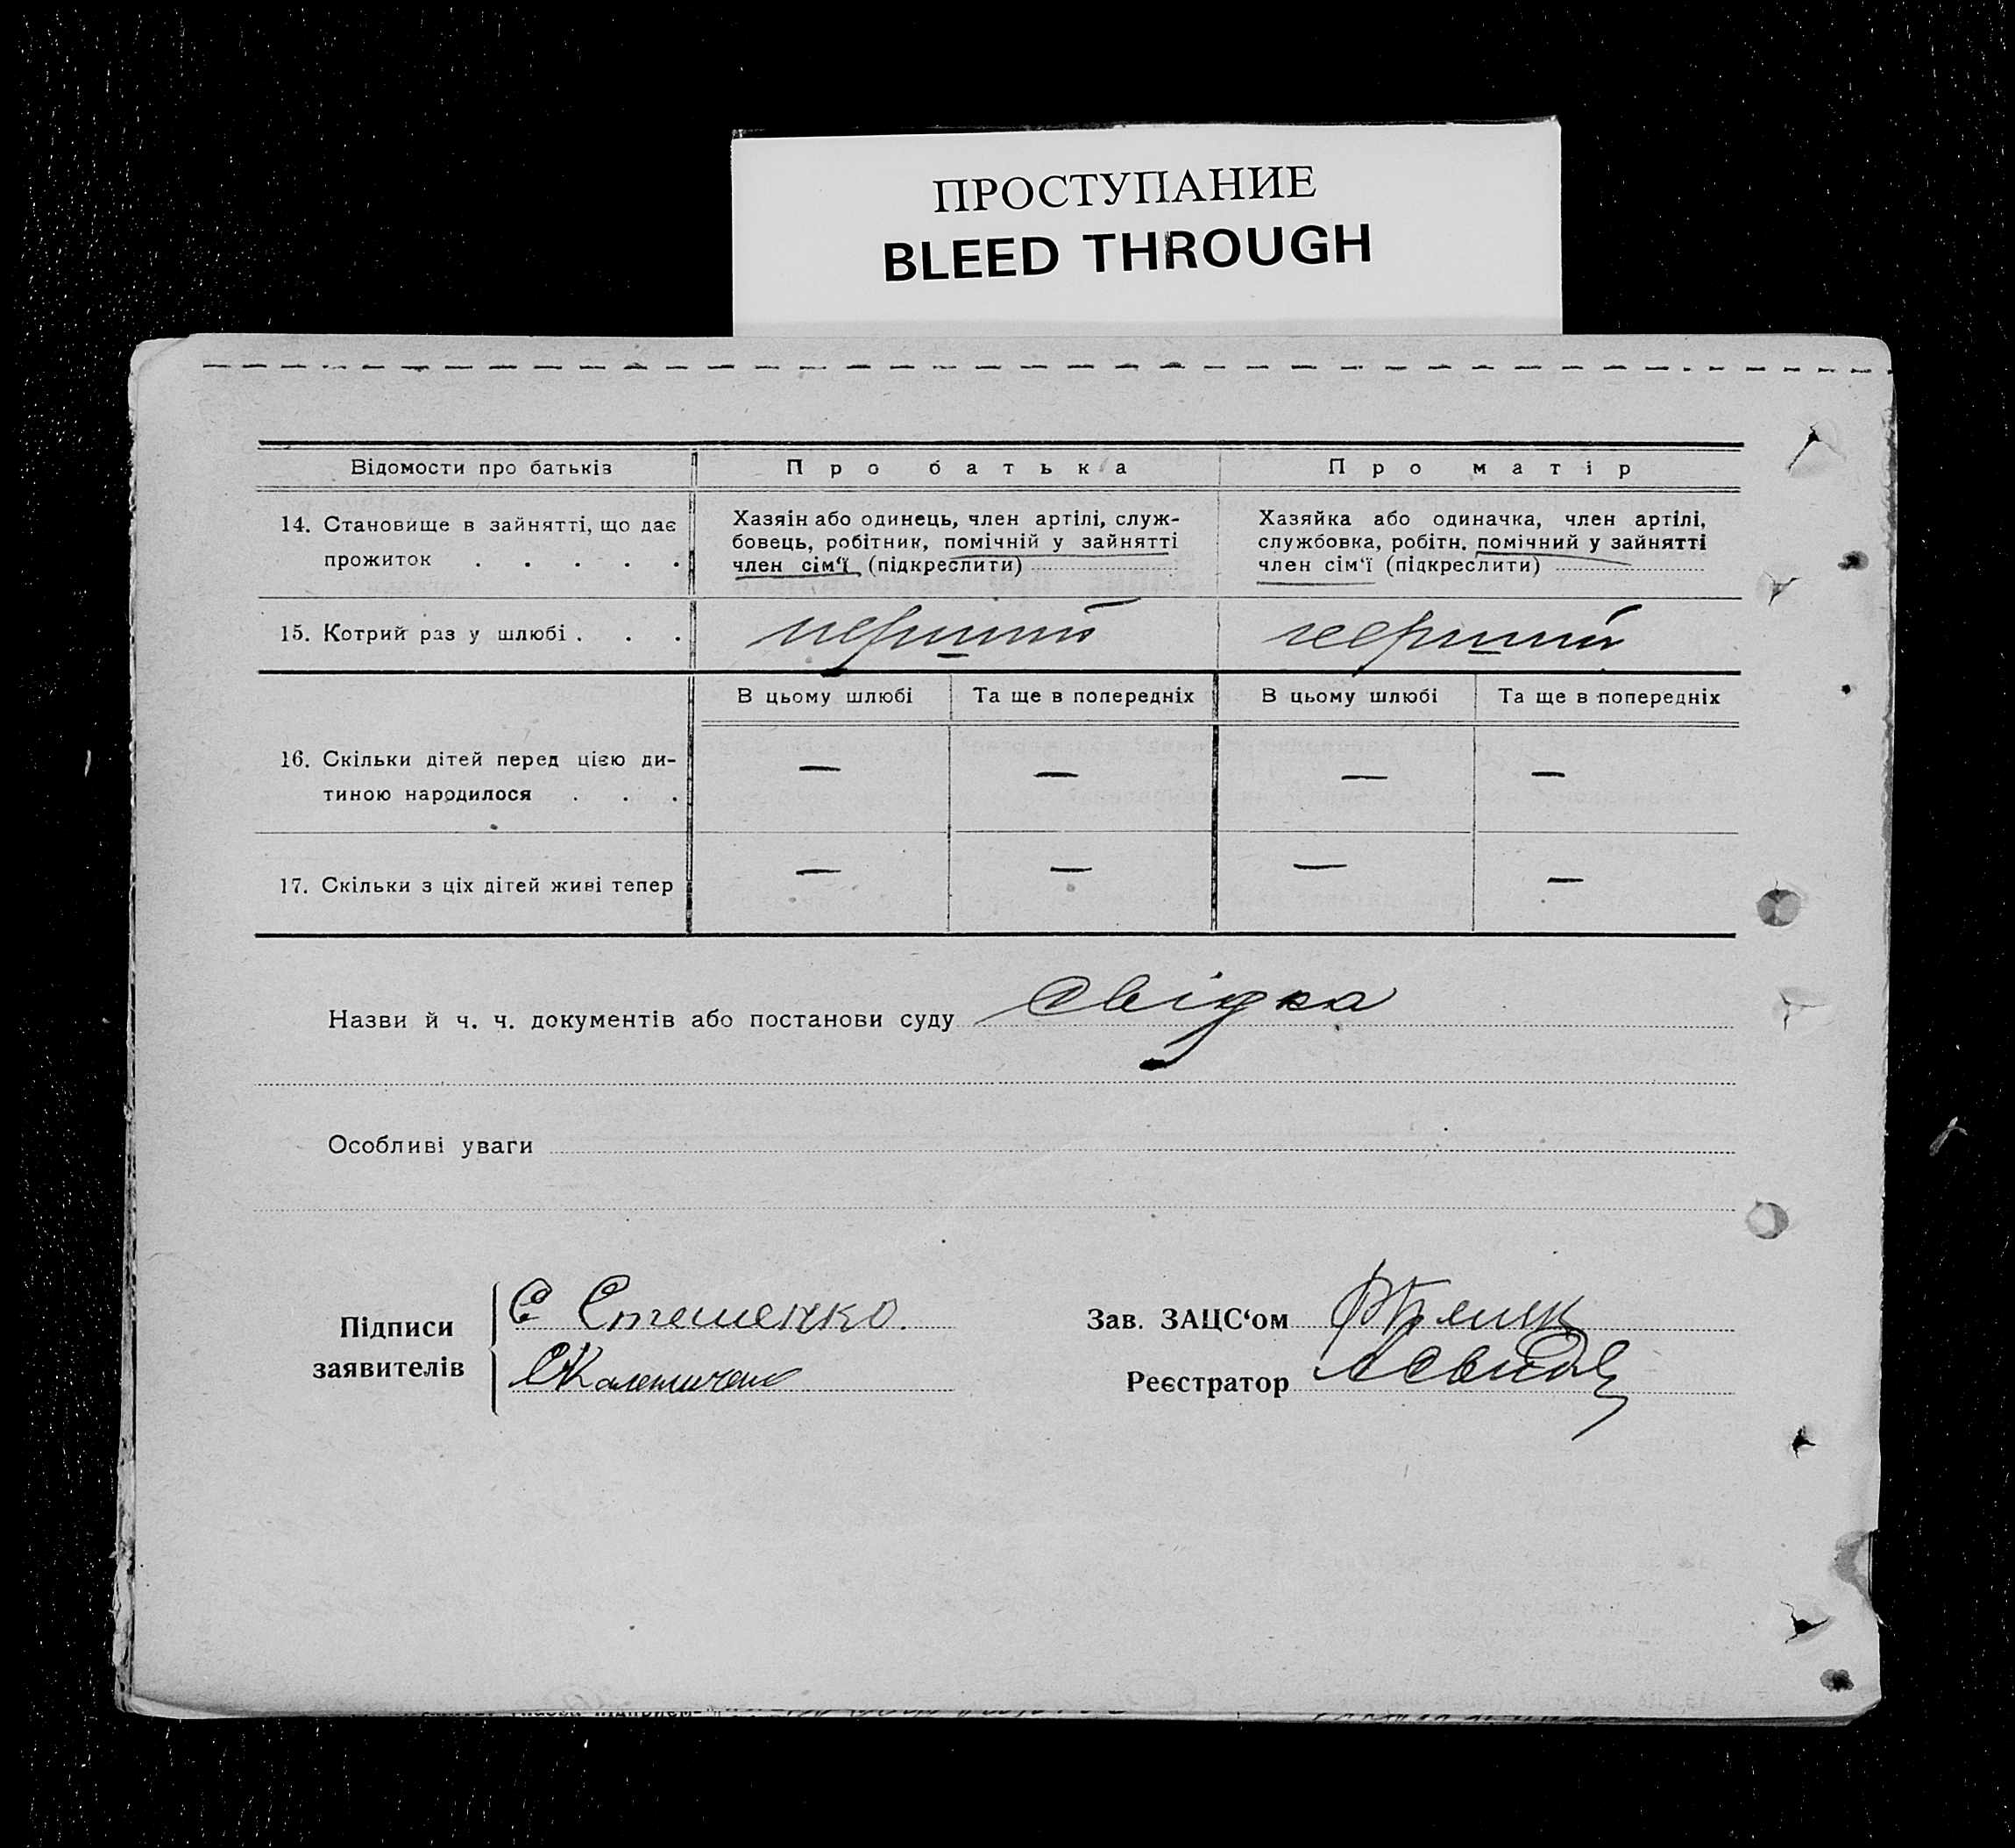 ПРОСТУПАНИЕ
BLEED THROUGH
Відомости про батьків Про батька Про матір
14. Становище в зайнятті, що дає прожиток . . . . .
Хазяін або одинець, член артілі, служ-
бовець, робітник, помічній у зайнятті
член сім‘ї (підкреслити)
Хазяйка або одиначка, член артілі,
службовка, робітн. помічний у зайнятті
член сім‘ї (підкреслити)
15. Котрий раз у шлюбі . . . перший перший
В цьому шлюбі Та ще в попередніх В цьому шлюбі Та ще в попередніх
16. Скільки дітей перед цією ди-
тиною народилося . . . — — — —
17. Скільки з ціх дітей живі тепер — — — —
Назви й ч. ч. документів або постанови суду свідка
Особливі уваги
Підписи
заявителів
С Стешенко.
Зав. ЗАЦС‘ом
Реєстратор